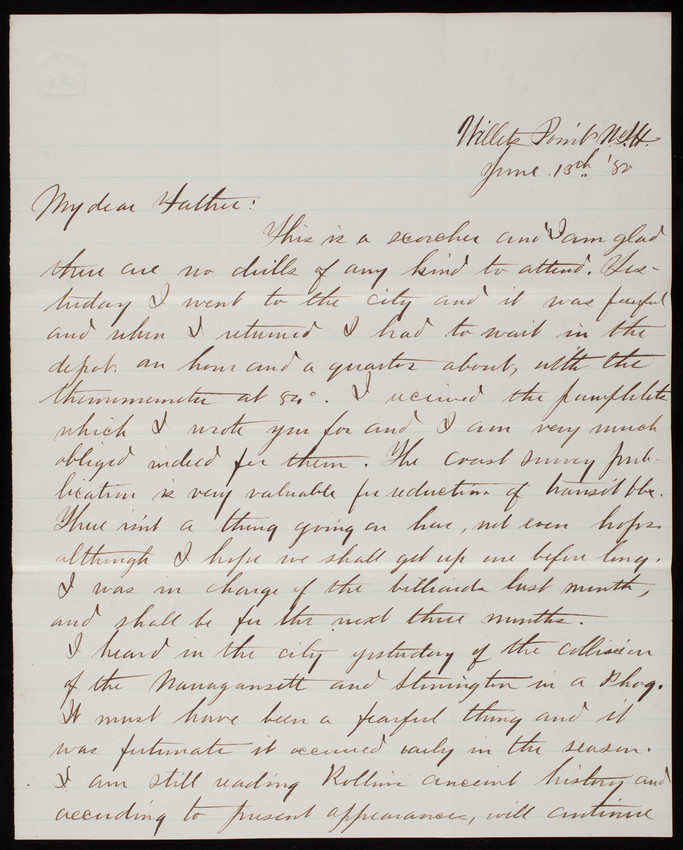 Willets Point N.Y.H.
June 13th '80
My dear Father:
This is a scorcher and I am glad
there are no drills of any kind to attend. Yes-
terday I went to the city and it was fearful
and when I returned I had to wait in the
depot an hour and a quarter about, with the
thermometer at 80°. I received the pamphlets
which I wrote you for and I am very much
obliged indeed for them. The coast survey pub-
lication is very valuable for reduction of transit obs.
There isn't a thing going on here, not even hops
although I hope we shall get up one before long.
I was in charge of the billiards last month,
and shall be for the next three months.
I heard in the city yesterday of the collision
of the Narragansett and Stonington in a fog.
It must have been a fearful thing and it
was fortunate it occurred early in the season.
I am still reading Rollins ancient history and
according to present appearances, will continue